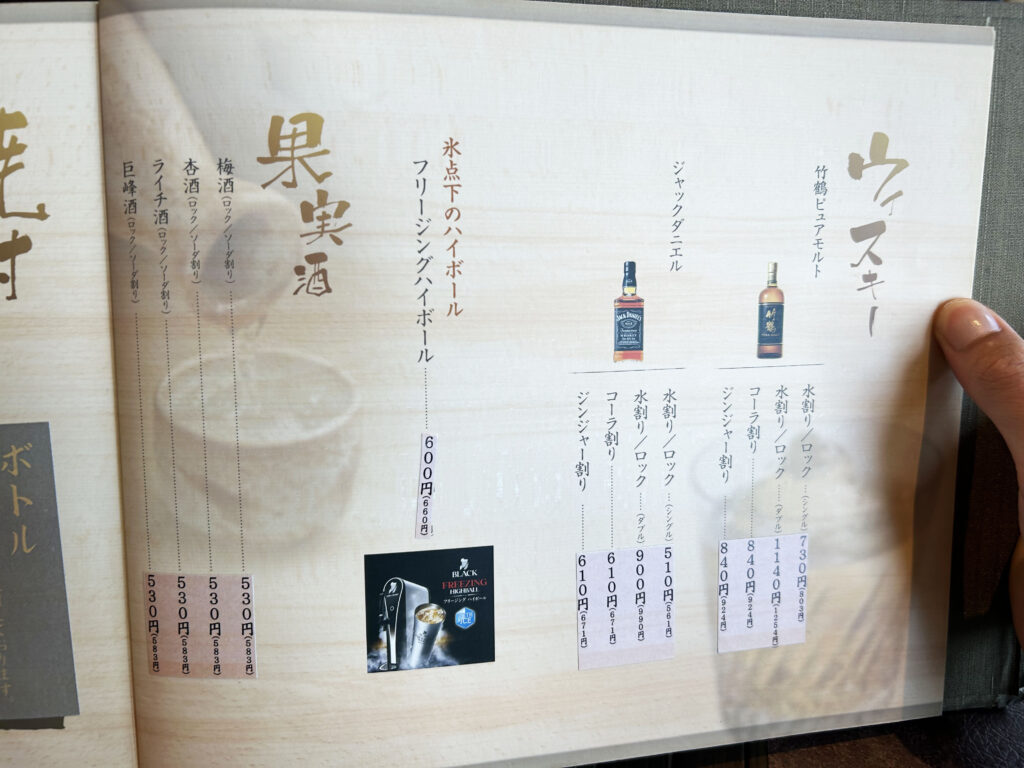 ウイスキー
竹鶴ピュアモルト
水割り／ロック …（シングル） 730円(803円)
水割り／ロック …（ダブル） 1140円(1254円)
コーラ割り 840円(924円)
ジンジャー割り 840円(924円)
竹鶴
ジャックダニエル
水割り／ロック …（シングル） 510円(561円)
水割り／ロック …（ダブル） 900円(990円)
コーラ割り 610円(671円)
ジンジャー割り 610円(671円)
JACK DANIEL'S
氷点下のハイボール
フリージングハイボール 600円(660円)
BLACK
FREEZING
HIGHBALL
フリージング ハイボール
果実酒
梅酒(ロック／ソーダ割り) 530円(583円)
杏酒(ロック／ソーダ割り) 530円(583円)
ライチ酒(ロック／ソーダ割り) 530円(583円)
巨峰酒(ロック／ソーダ割り) 530円(583円)
ボトル